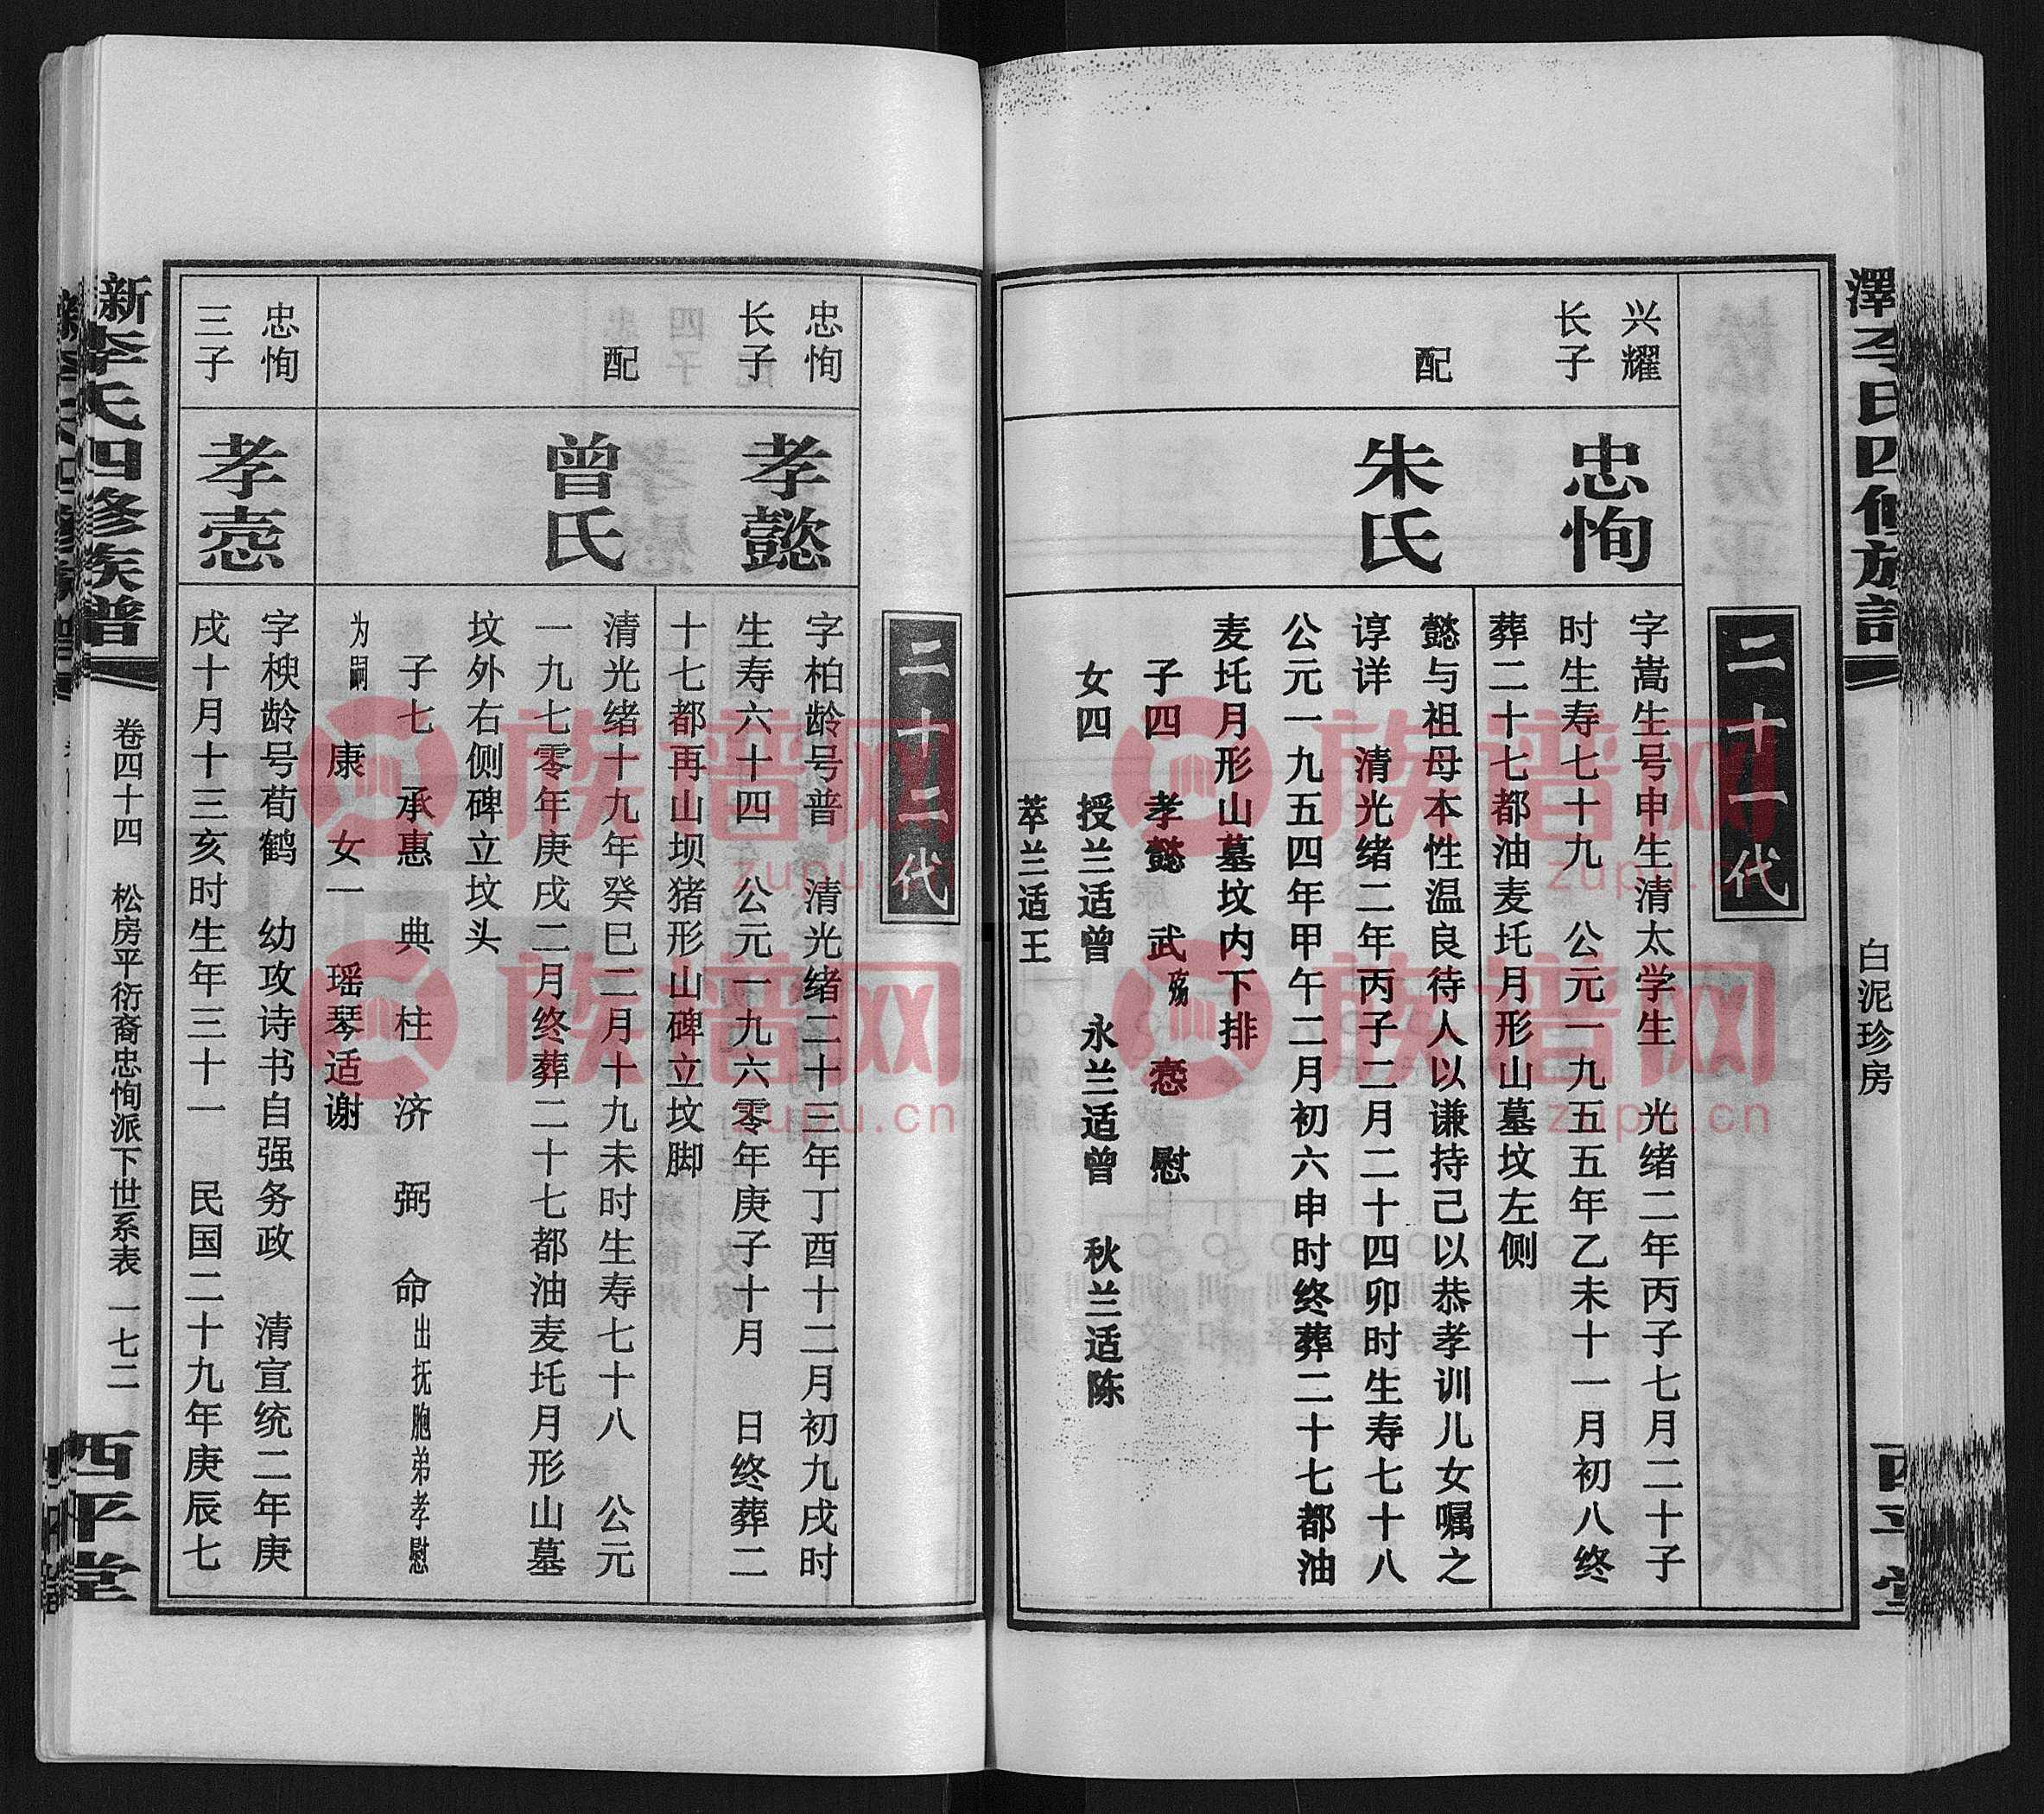 澤李氏四修族譜
白泥珍房
二十一代
兴耀
长子
忠恂
字嵩生号申生清太学生　光绪二年丙子七月二十子
时生寿七十九　公元一九五五年乙未十一月初八终
葬二十七都油麦圫月形山墓坟左侧
配
朱氏
懿与祖母本性温良待人以谦持己以恭孝训儿女嘱之
谆详　清光绪二年丙子二月二十四卯时生寿七十八
公元一九五四年甲午二月初六申时终葬二十七都油
麦圫月形山墓坟内下排
子四　孝懿　武殇　悫　慰
女四　授兰适曾　永兰适曾　秋兰适陈
萃兰适王
二十二代
忠恂
长子
孝懿
字柏龄号普　清光绪二十三年丁酉十二月初九戌时
生寿六十四　公元一九六零年庚子十月　日终葬二
十七都再山坝猪形山碑立坟脚
配
曾氏
清光绪十九年癸巳二月十九未时生寿七十八　公元
一九七零年庚戌二月终葬二十七都油麦圫月形山墓
坟外右侧碑立坟头
子七　承惠　典　柱　济　弼　命出抚胞弟孝慰
为嗣　康　女一　瑶琴适谢
忠恂
三子
孝悫
字楔龄号荀鹤　幼攻诗书自强务政　清宣统二年庚
戌十月十三亥时生年三十一　民国二十九年庚辰七
新李氏四修族谱
卷四十四　松房平衍裔忠恂派下世系表　一七二
西平堂
族谱网
zupu.cn
族谱网
zupu.cn
族谱网
zupu.cn
族谱网
zupu.cn